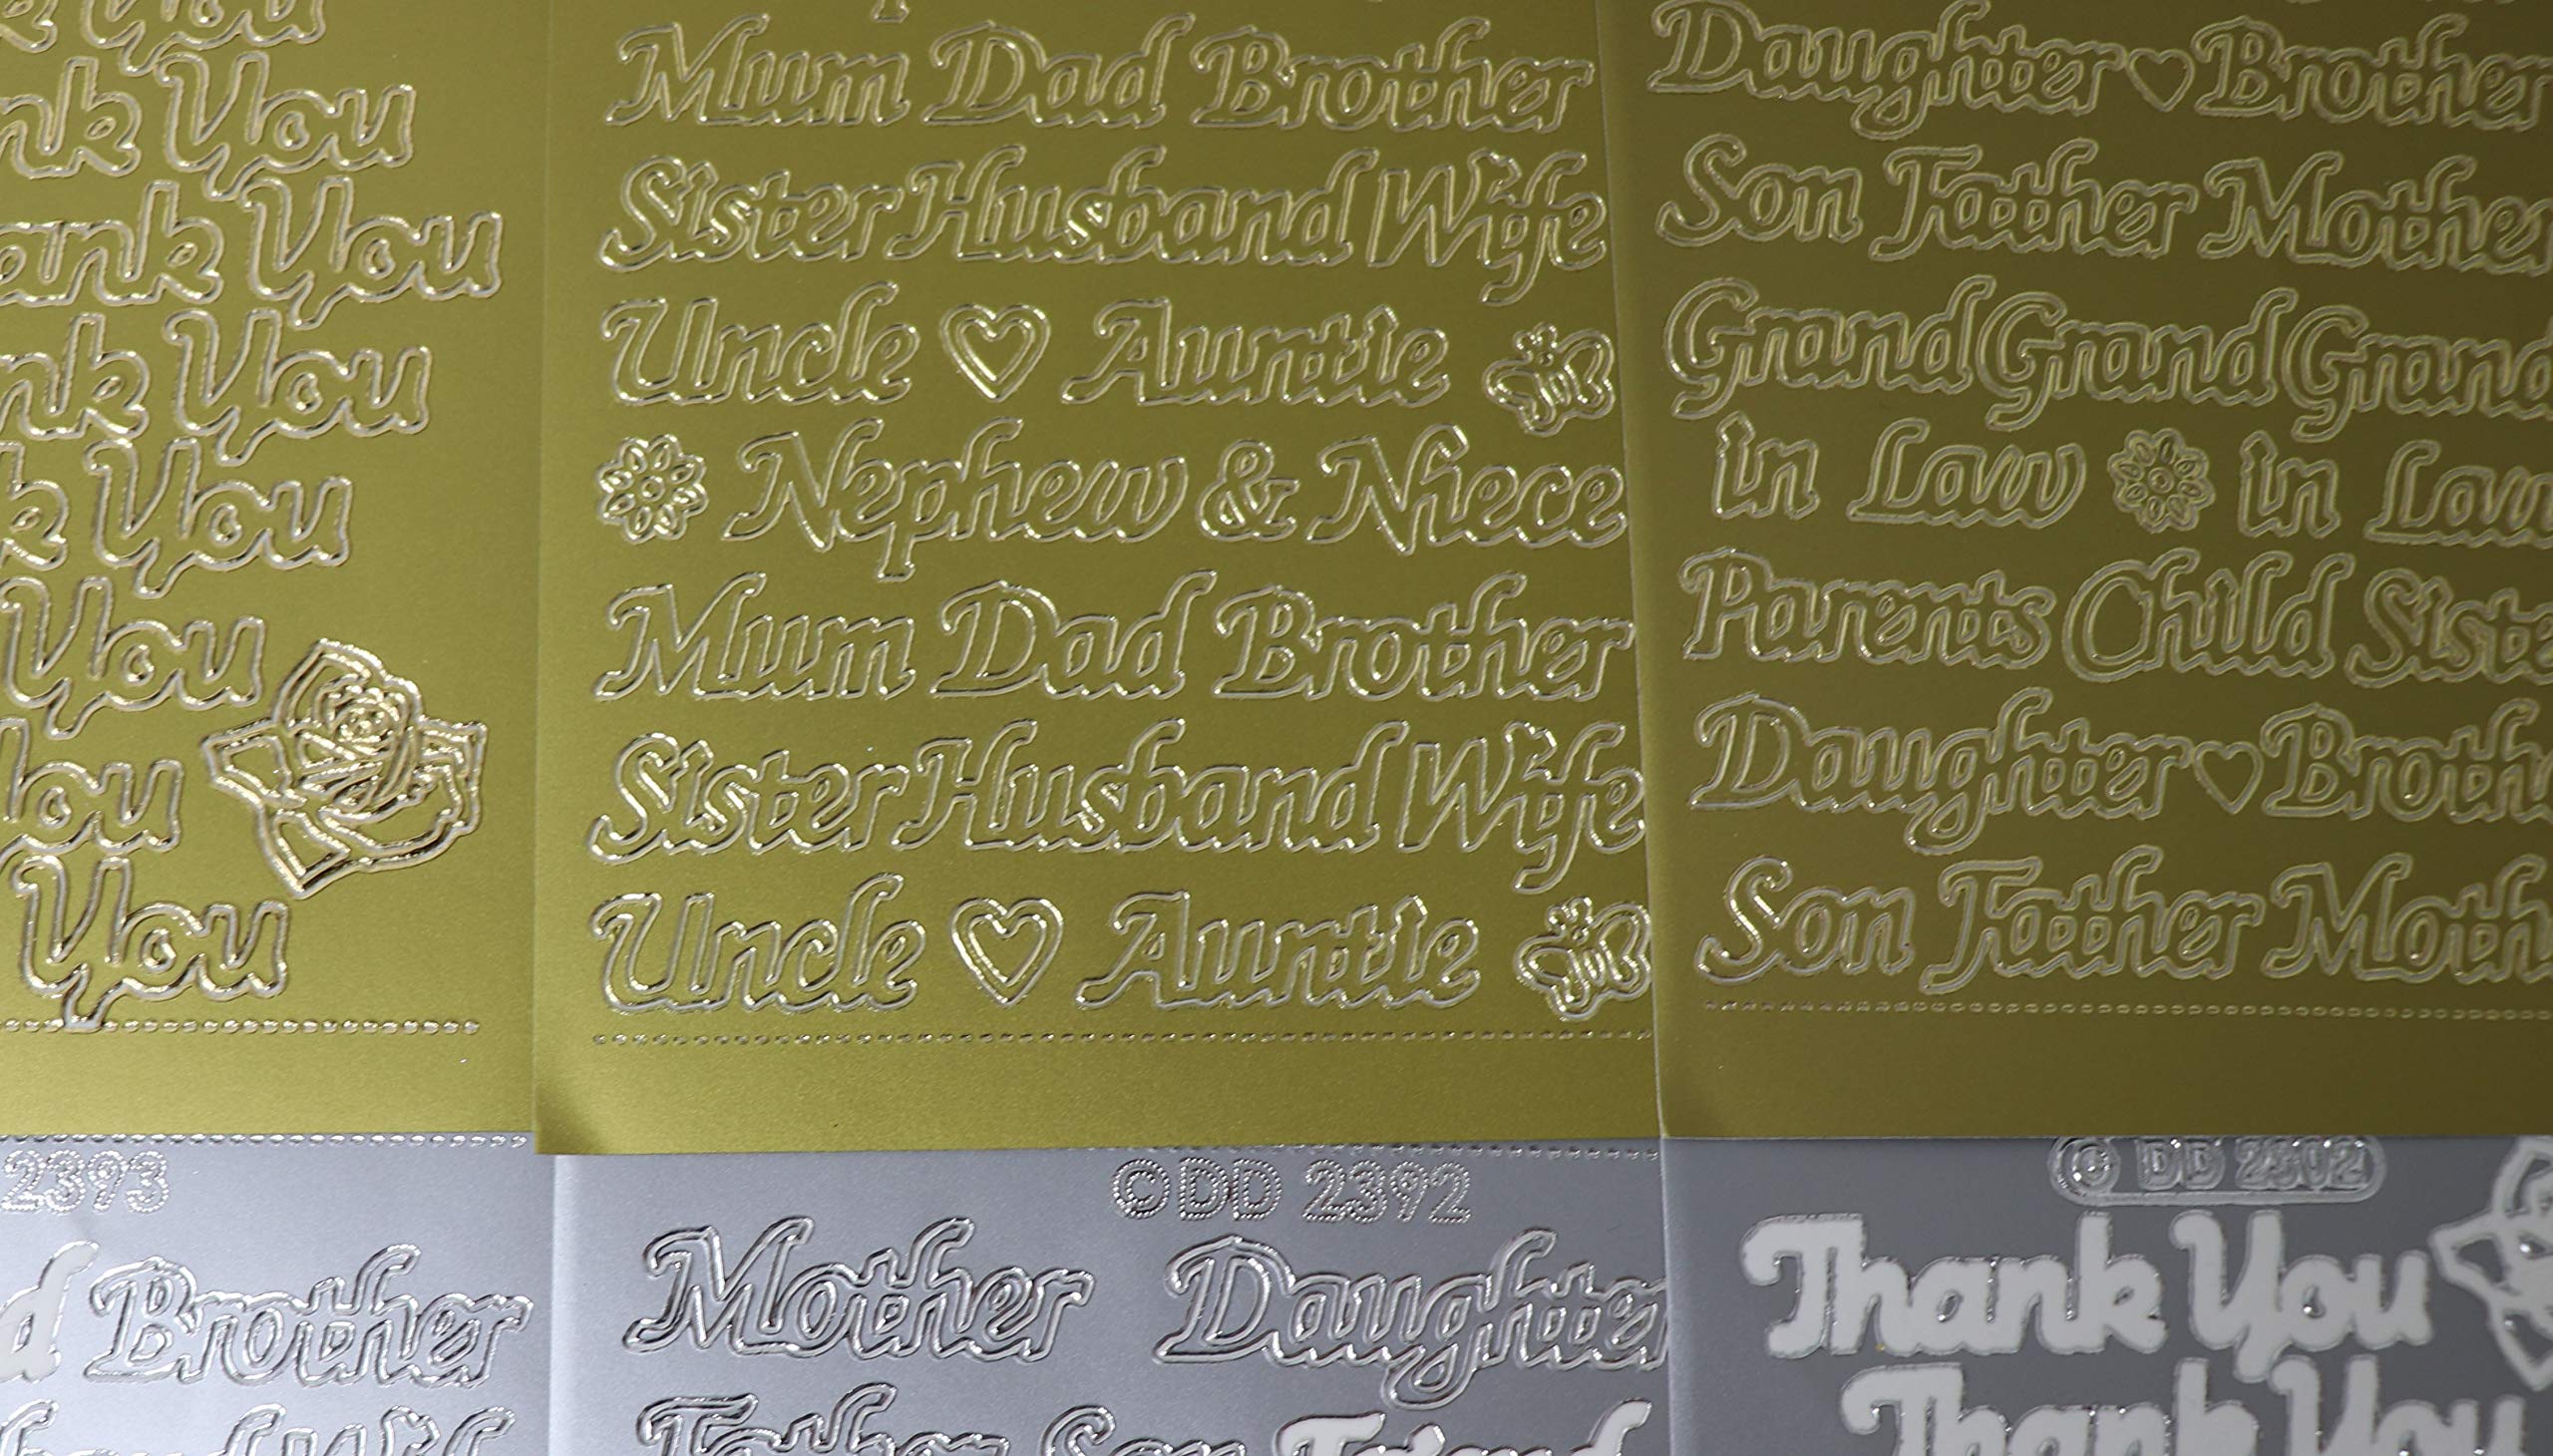 You
nk You
ank You
nk You
k You
You
You
You
Mum Dad Brother
Sister Husband Wife
Uncle Auntie
Nephew & Niece
Mum Dad Brother
Sister Husband Wife
Uncle Auntie
Daughter Brother
Son Father Mother
Grand Grand Grand
in Law in Law
Parents Child Siste
Daughter Brothe
Son Father Moth
2393
d Brother
©DD 2392
Mother Daughter
Father Son Friend
© DD 2302
Thank You
Thank You